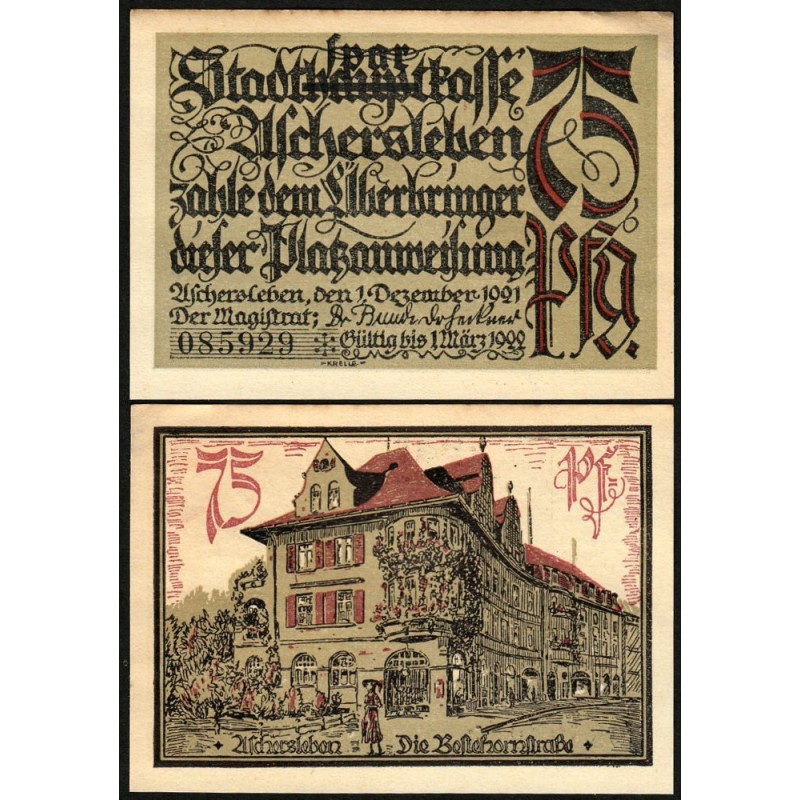 spar
Stadthauptkasse
Aschersleben
zahle dem Überbringer
dieser Platzanweisung
75
Pfg.
Aschersleben, den 1. Dezember 1921
Der Magistrat;
085929 Gültig bis 1. März 1922
75
Pf
Aschersleben Die Bestehornstraße